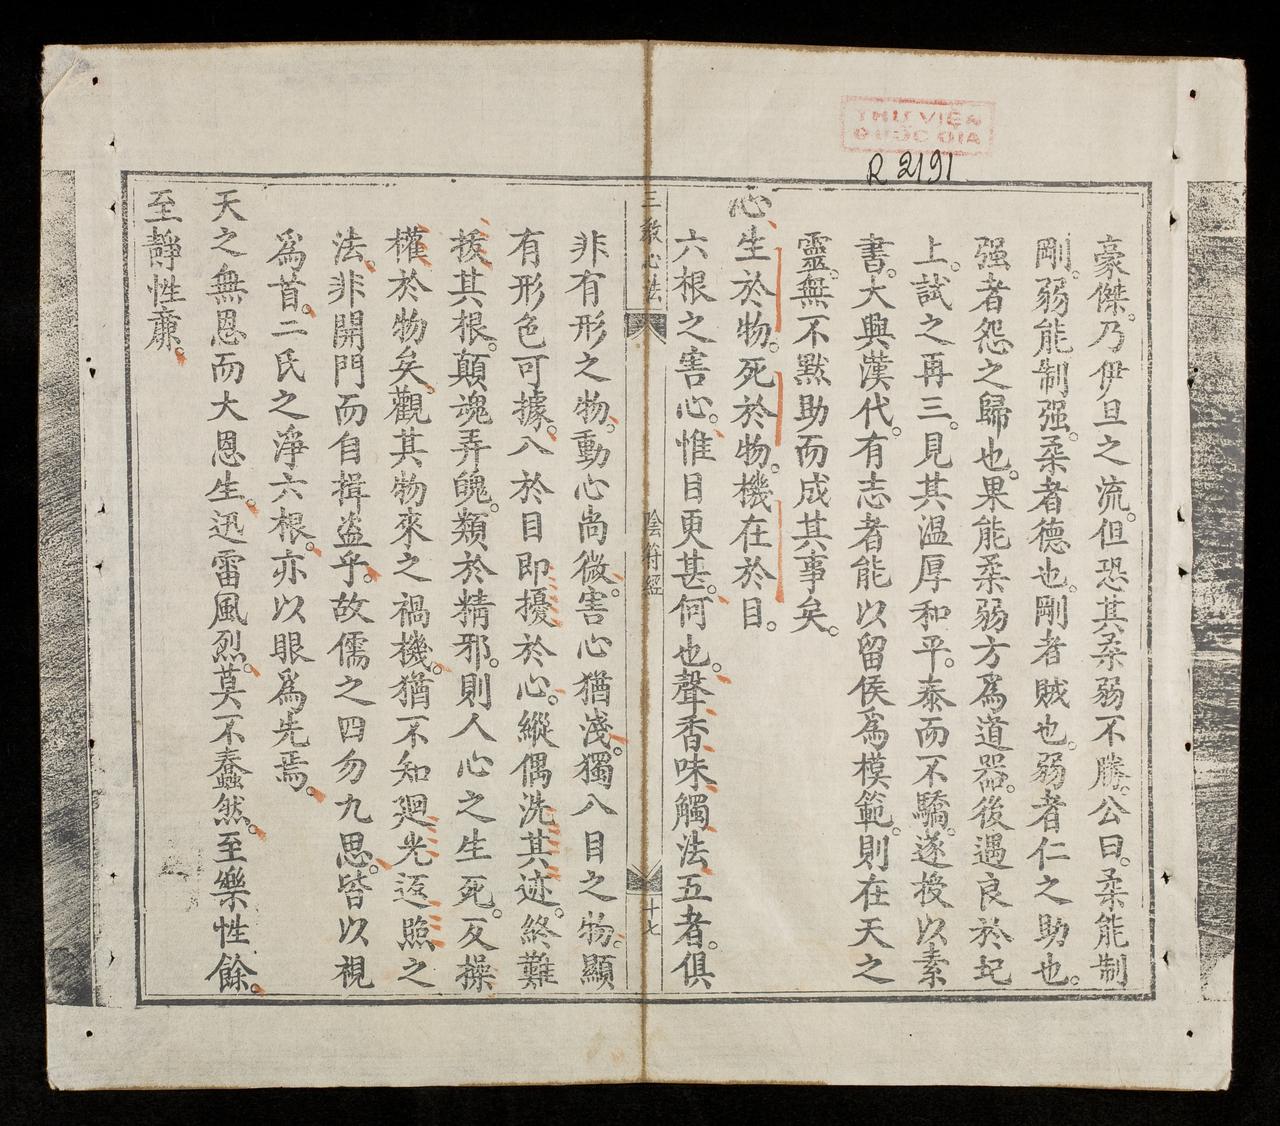 THƯ VIỆN
QUỐC GIA
R 2191
豪傑。乃伊旦之流。但恐其柔弱不勝。公曰。柔能制
剛。弱能制强。柔者德也。剛者賊也。弱者仁之助也。
强者怨之歸也。果能柔弱方爲道器。後遇良於圯
上。試之再三。見其温厚和平。泰而不驕。遂授以素
書。大興漢代。有志者能以留侯爲模範。則在天之
靈。無不默助而成其事矣。
心生於物。死於物。機在於目。
六根之害心。惟目更甚。何也。聲香味觸法五者。俱
三教心法
陰符經
十七
非有形之物。動心尚微。害心猶淺。獨入目之物。顯
有形色可據。入於目即擾於心。縱偶洗其迹。終難
拔其根。顛魂弄魄。類於精邪。則人心之生死。反操
權於物矣。觀其物來之禍機。猶不知廻光返照之
法。非開門而自揖盗乎。故儒之四勿九思。皆以視
爲首。二氏之淨六根。亦以眼爲先焉。
天之無恩而大恩生。迅雷風烈。莫不蠢然。至樂性餘。
至靜性廉。